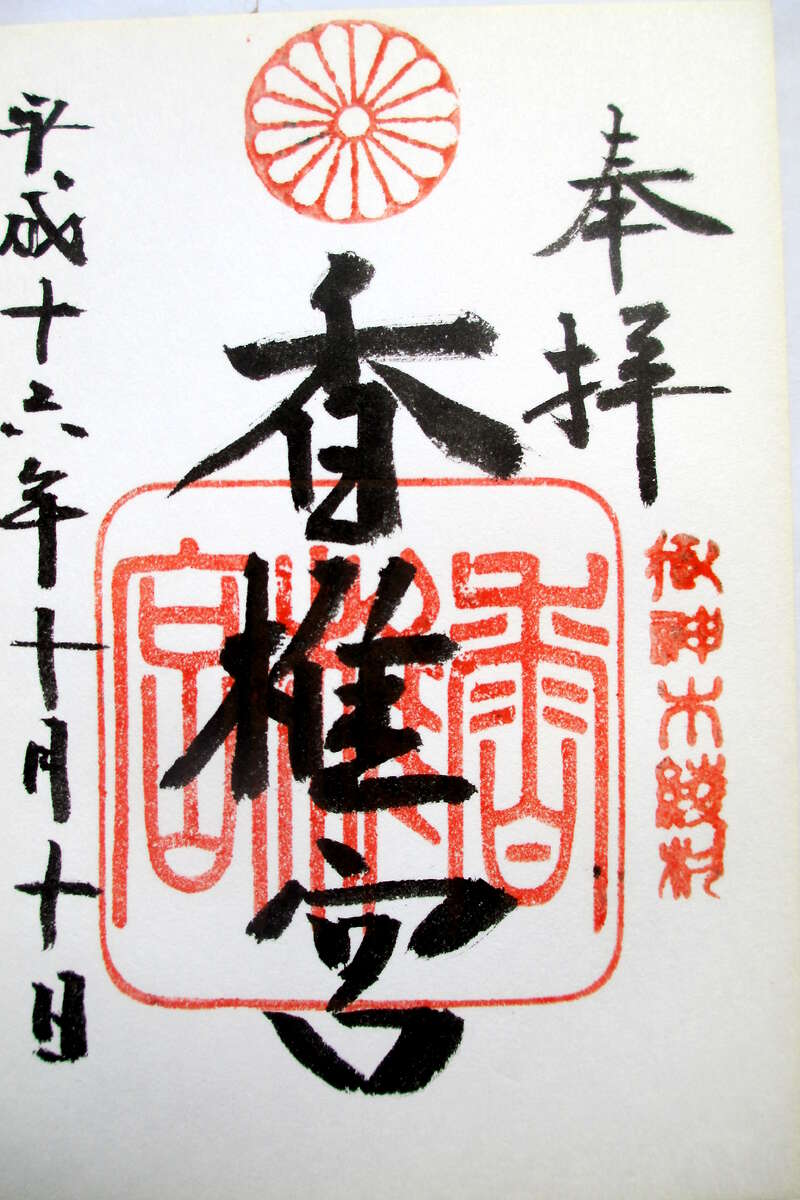 奉拝
御神木綾杉
香椎宮
香椎宮
平成十六年十月十日